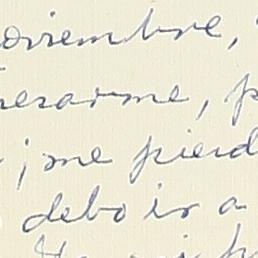 noviembre,
erarme, p
; me pierd
debo ir a